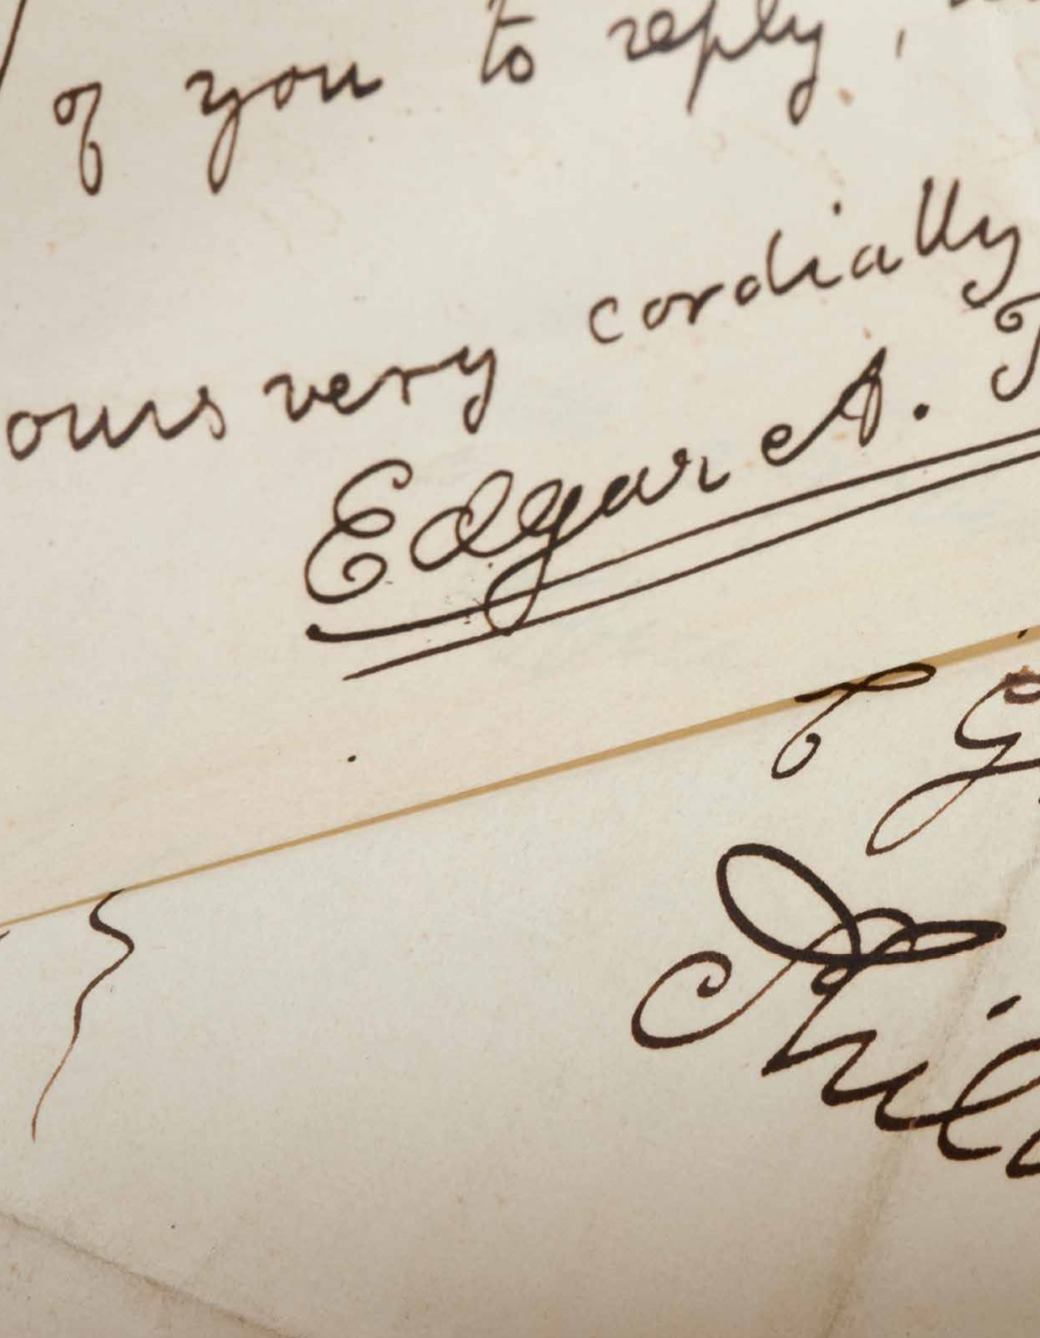 of you to reply,
ours very cordially
Edgar A.
Phil